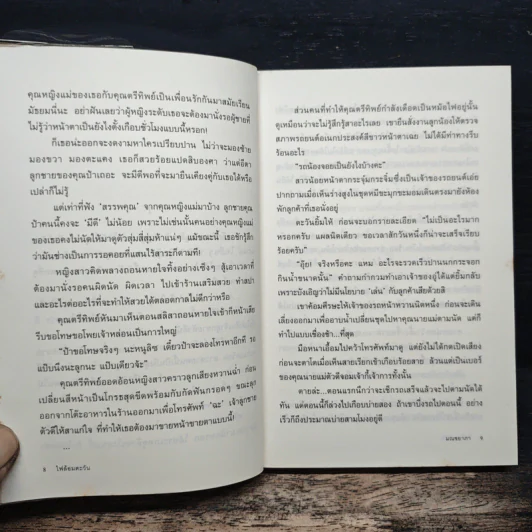 คุณหญิงแม่ของเธอกับคุณตรีทิพย์เป็นเพื่อนรักกันมาสมัยเรียน
มัธยมนี่นะ อย่าฝันเลยว่าผู้หญิงระดับเธอจะต้องมานั่งรอผู้ชายที่
ไม่รู้ว่าหน้าตาเป็นยังไงตั้งเกือบชั่วโมงแบบนี้หรอก!
ก็เธอน่ะออกจะงดงามหาใครเปรียบปาน ไม่ว่าจะมองซ้าย
มองขวา มองตะแคง เธอก็สวยร้อยแปดสิบองศา ว่าแต่อีตา
ลูกชายของคุณป้าเถอะ จะมีดีพอที่จะมายืนเคียงคู่กับเธอได้หรือ
เปล่าก็ไม่รู้
แต่เท่าที่ฟัง ‘สรรพคุณ’ จากคุณหญิงแม่มาบ้าง ลูกชายคุณ
ป้าคนนี้คงจะ ‘มีดี’ ไม่น้อย เพราะไม่เช่นนั้นคนอย่างคุณหญิงแม่
ของเธอคงไม่นัดให้มาดูตัวสุ่มสี่สุ่มห้าแน่ๆ แม้ขณะนี้ เธอชักรู้สึก
ว่ามันช่างเป็นการรอคอยที่แสนไร้สาระก็ตามที!
หญิงสาวคิดพลางถอนหายใจทิ้งอย่างเซ็งๆ สู้เอาเวลาที่
ต้องมานั่งรอคนผิดนัด ผิดเวลา ไปเข้าร้านเสริมสวย ทำสปา
และอะไรต่ออะไรที่จะทำให้สวยได้ตลอดกาลไม่ดีกว่าหรือ
คุณตรีทิพย์หันมาเห็นตอนสลิสาถอนหายใจเข้าก็หน้าเสีย
รีบขอโทษขอโพยเจ้าหล่อนเป็นการใหญ่
“ป้าขอโทษจริงๆ นะหนูลิซ เดี๋ยวป้าจะลองโทรหาอีกที รอ
แป๊บนึงนะลูกนะ แป๊บเดียวจ้ะ”
คุณตรีทิพย์ออดอ้อนหญิงสาวคราวลูกเสียงหวานฉ่ำ ก่อน
เปลี่ยนสีหน้าเป็นโกรธสุดขีดพร้อมกับกัดฟันกรอดๆ ขณะลุก
ออกจากโต๊ะอาหารในร้านออกมาเพื่อโทรศัพท์ ‘ฉะ’ เจ้าลูกชาย
ตัวดีให้สาแก่ใจ ที่ทำให้เธอต้องมาขายหน้าขายตาแบบนี้!
...
8 ไฟล้อมตะวัน
ส่วนคนที่ทำให้คุณตรีทิพย์กำลังเดือดเป็นหม้อไฟอยู่นั้น
ดูเหมือนว่าจะไม่รู้สึกรู้สาอะไรเลย เขายืนสั่งงานลูกน้องให้ตรวจ
สภาพรถยนต์อเนกประสงค์สีขาวหน้าตาเฉย ไม่ได้มีท่าทางรีบ
ร้อนอะไร
“รถน้องจอยเป็นยังไงบ้างคะ”
สาวน้อยหน้าตากระจุ๋มกระจิ๋มซึ่งเป็นเจ้าของรถยนต์เอ่ย
ปากถามเมื่อเห็นร่างสูงในชุดหมีขะมุกขะมอมเดินตรงมายังห้อง
พักลูกค้าที่เธอนั่งอยู่
ตะวันยิ้มให้ ก่อนจะบอกรายละเอียด “ไม่เป็นอะไรมาก
หรอกครับ แผลนิดเดียว ขอเวลาสักวันหนึ่งก็น่าจะเสร็จเรียบ
ร้อยครับ”
“อุ๊ย! จริงหรือคะ แหม อะไรจะรวดเร็วปานนกกระจอก
กินน้ำขนาดนั้น” คำถามก้ำกวมทำเอาเจ้าของอู่ได้แต่ยิ้มกลับ
เพราะบังเอิญว่าไม่มีนโยบาย ‘เล่น’ กับลูกค้าเสียด้วยสิ
เขาค้อมศีรษะให้เจ้าของรถหน้าหวานนิดหนึ่ง ก่อนจะเดิน
เลี่ยงออกมาเพื่ออาบน้ำเปลี่ยนชุดไปหาคุณนายแม่ตามนัด แต่ก็
ทำไปแบบเชื่องช้า...ที่สุด
มือหนาเอื้อมไปคว้าโทรศัพท์มาดู แต่ยังไม่ได้กดเปิดเสียง
ก่อนจะตาโตเมื่อเห็นสายเรียกเข้าเกือบร้อยสาย ล้วนแต่เป็นเบอร์
ของคุณนายแม่ตัวดีจอมเจ้ากี้เจ้าการทั้งนั้น
ตายล่ะ...ตอนแรกนึกว่าจะเช็กรถเสร็จแล้วจะไปตามนัดได้
ทัน แต่ตอนนี้ก็ล่วงไปเกือบบ่ายสอง ถ้าเขาบึ่งรถไปตอนนี้ อย่าง
เร็วก็ถึงประมาณบ่ายสามโมงอยู่ดี
มณชยาภา 9